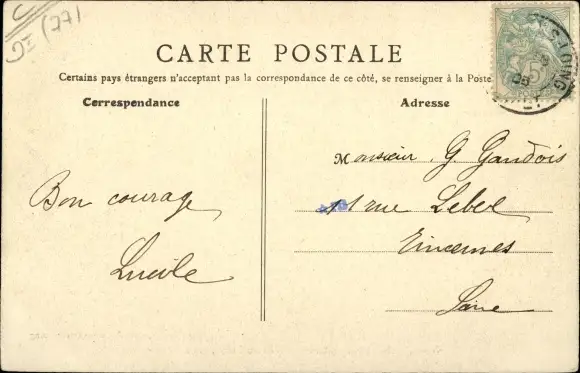 (77)
CARTE POSTALE
Certains pays étrangers n'acceptant pas la correspondance de ce côté, se renseigner à la Poste
Correspondance
Adresse
Bon courage
Lucile
Monsieur G. Gaudois
rue Lebel
Vincennes
Seine
5